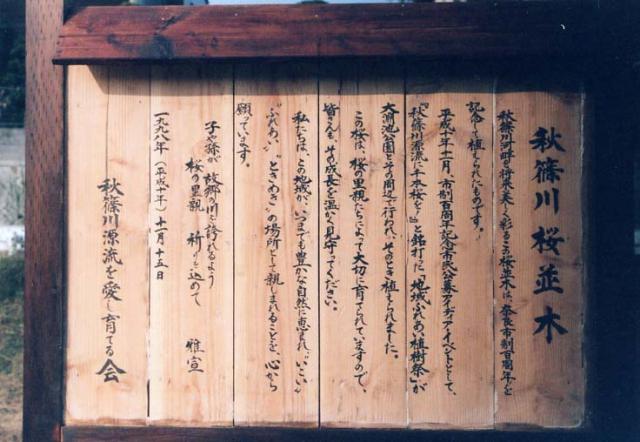 秋篠川桜並木
秋篠川河畔を将来美しく彩るこの桜並木は、奈良市制百周年を
記念して植えられたものです。
平成十年十一月、市制百周年記念市民公募アイデアイベントとして、
『秋篠川源流に千本桜を』と銘打た「地域ふれあい植樹祭」が
大渕池公園とその周辺で行われ、そのとき植えられました。
この桜は、桜の里親たちによって大切に育てられていますので、
皆さんも、その成長を温かく見守ってください。
私たちは、この地域が、いつまでも豊かな自然に恵まれ、"いこい"
"ふれあい""ときめき"の場所として親しまれることを、心から
願っています。
子や孫が故郷の川と誇れるよう
桜の里親 祈り込めて 雅宣
一九九八年(平成十年)十一月十五日
秋篠川源流を愛し育てる会